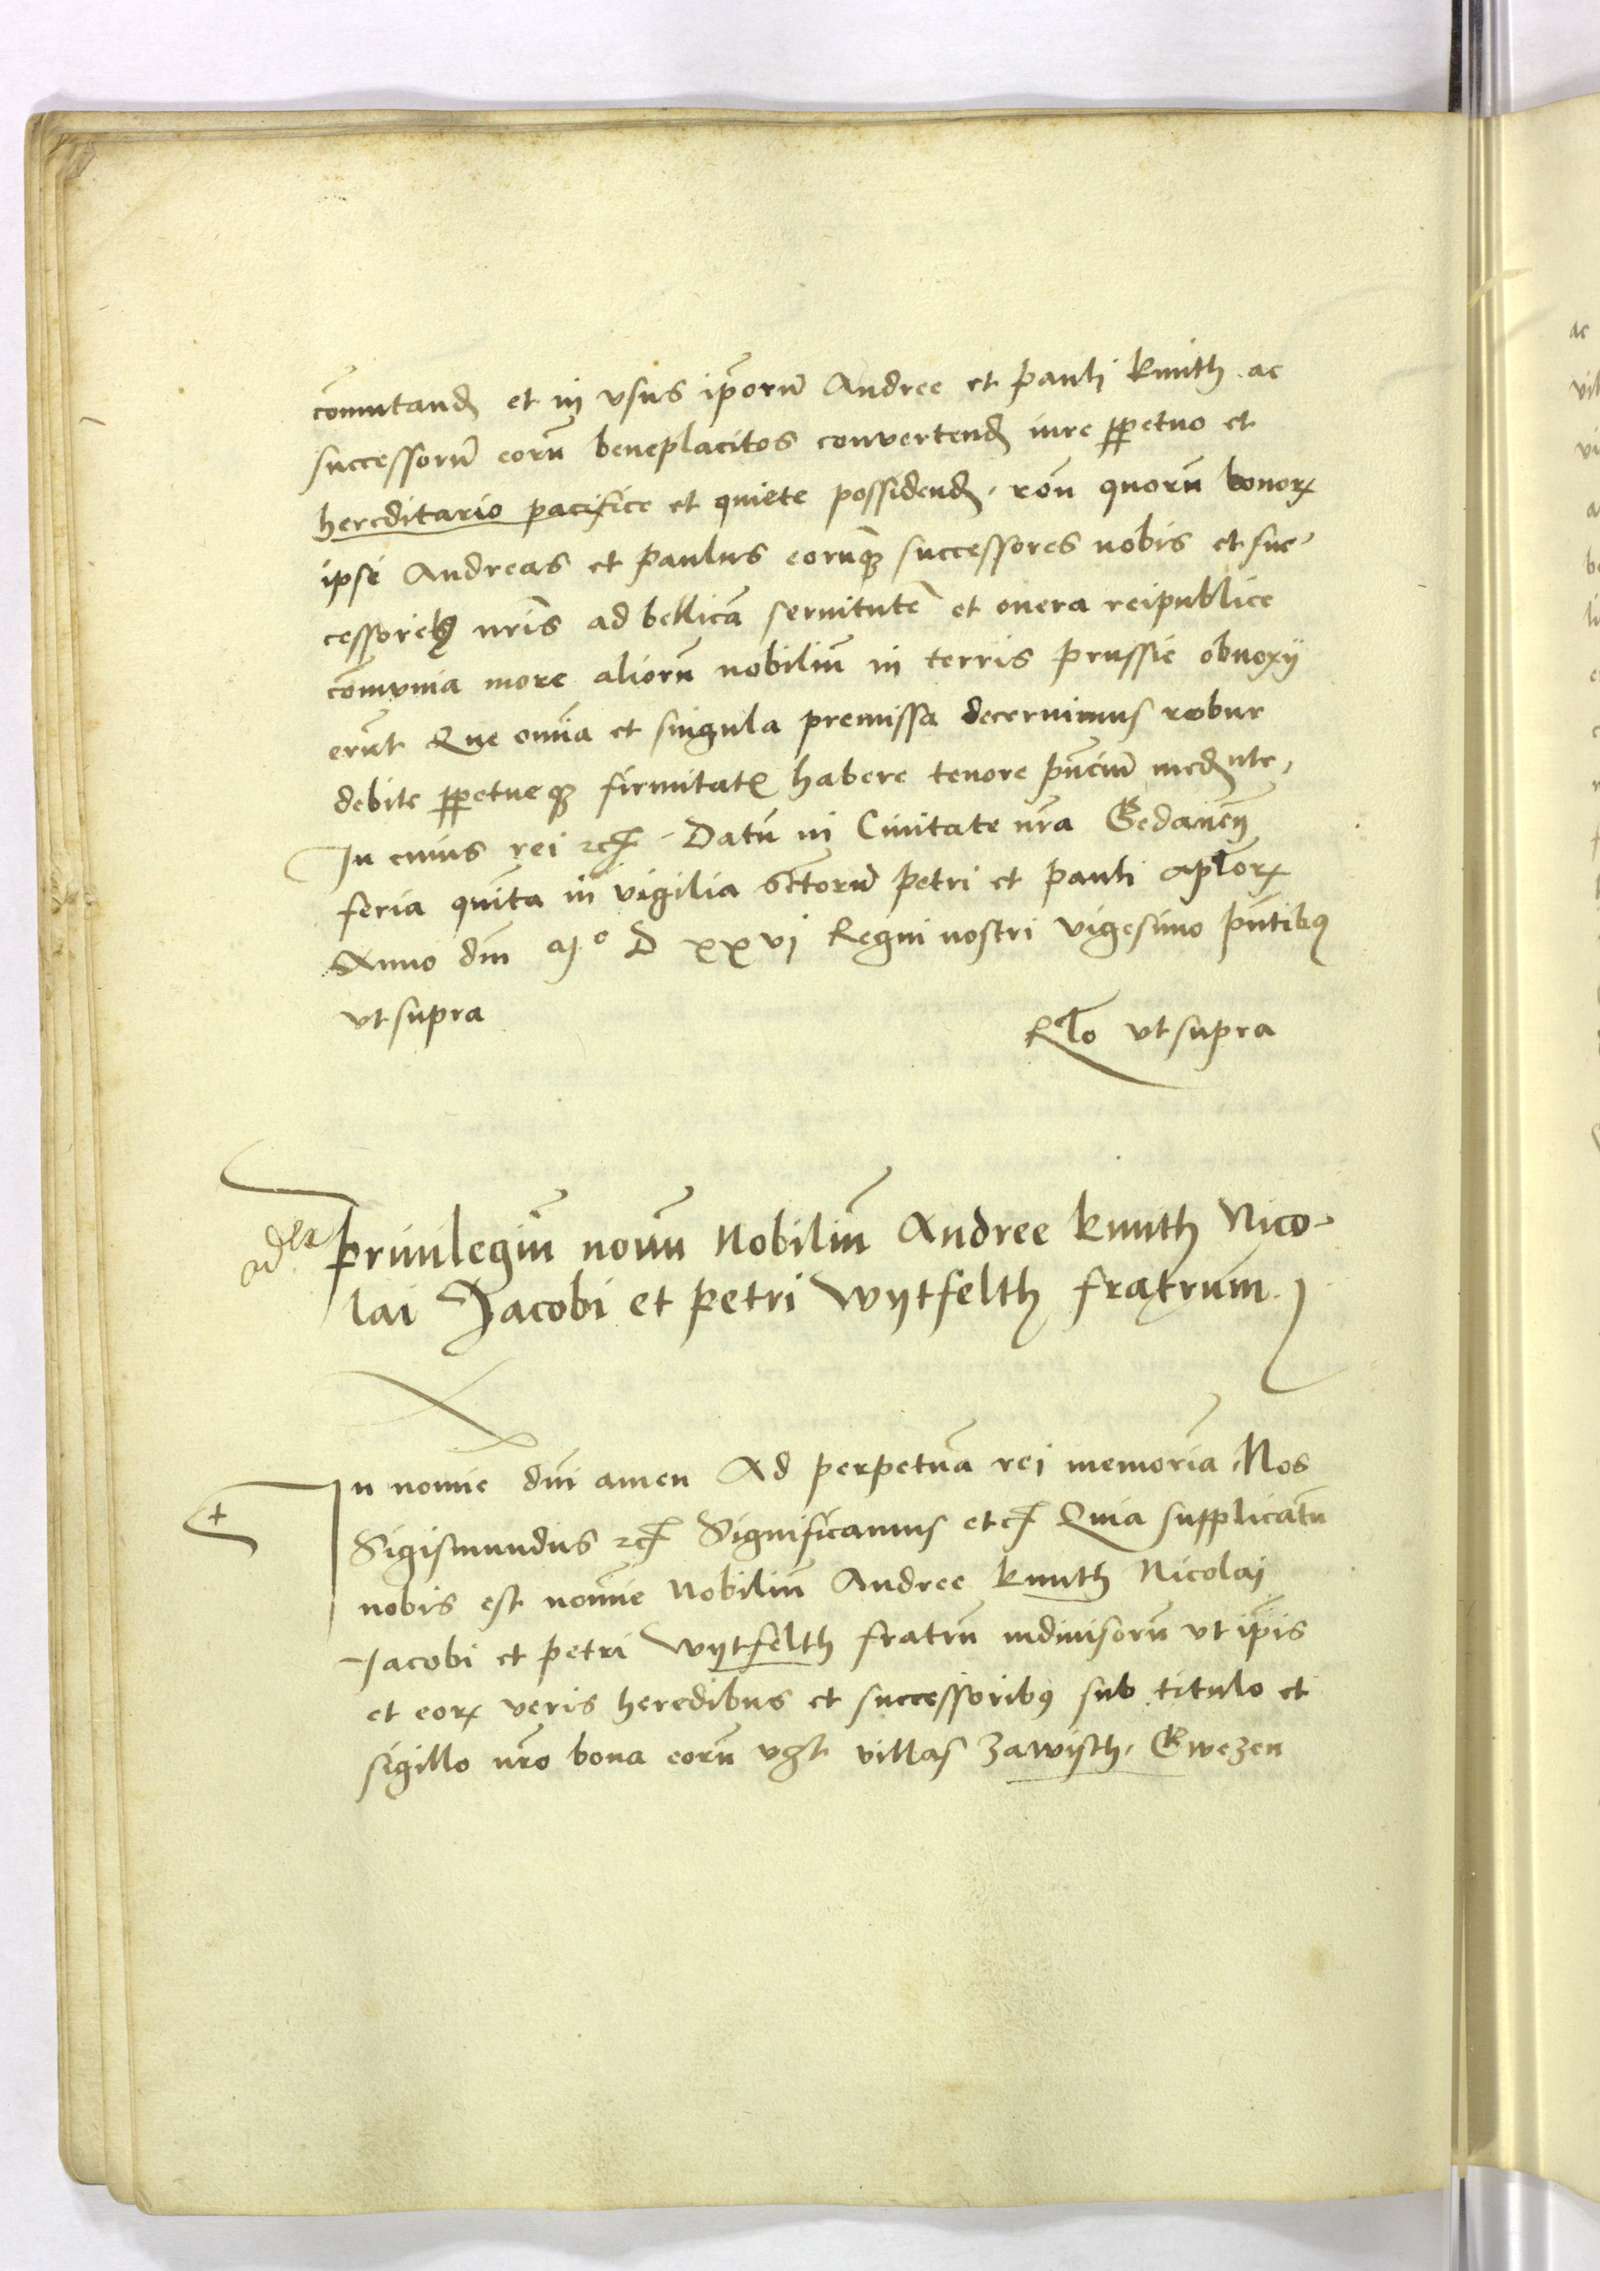 co̅mutand et in vsus ip̅oru̅ Andree et pauli knuth ac
successoru̅ eoru̅ beneplacitos convertend iure ꝑpetuo et
hereditario pacifice et quiete possidend, ro̅n quoru̅ bonorꝝ
ipsi Andreas et paulus eorumqꝫ successores nobis et suc-
cessoribꝫ nr̅is ad bellica̅ seruitute̅ et onera reipublice
co̅mvnia more alioru̅ nobiliu̅ in terris prussie obnoxij
eru̅t Que om̅ia et singula premissa decernimus robur
debite ꝑpetueqꝫ firmitatꝭ habere tenore pn̅ciu̅ mednte,
In cuius rei ⁊c̅ Datu̅ in Ciuitate nr̅a Gedanen̅
feria quita in vigilia Sc̅toru̅ petri et pauli apl̅orꝝ
Anno dn̅i Mo D xxvj Regni nostri vigesimo pn̅tibꝰ
vt supra
Rl̅o vt supra
priuilegiu̅ nouu̅ Nobiliu̅ Andree knuth Nico-
lai Jacobi et petri Wijtfelth fratrum.
In no̅ie dn̅i amen Ad perpetua̅ rei memoria̅, Nos
+
Sigismundus ⁊c̅ Significamus etc̅ Quia supplicatu̅
nobis est no̅ie Nobiliu̅ Andree knuth Nicolaj
Jacobi et petri Wijtfelth fratru̅ indiuisoru̅ vt ip̅is
et eorꝝ veris heredibus et successoribꝰ sub titulo et
sigillo nr̅o bona eoru̅ vꝫt villas Zawisch, Gwezen